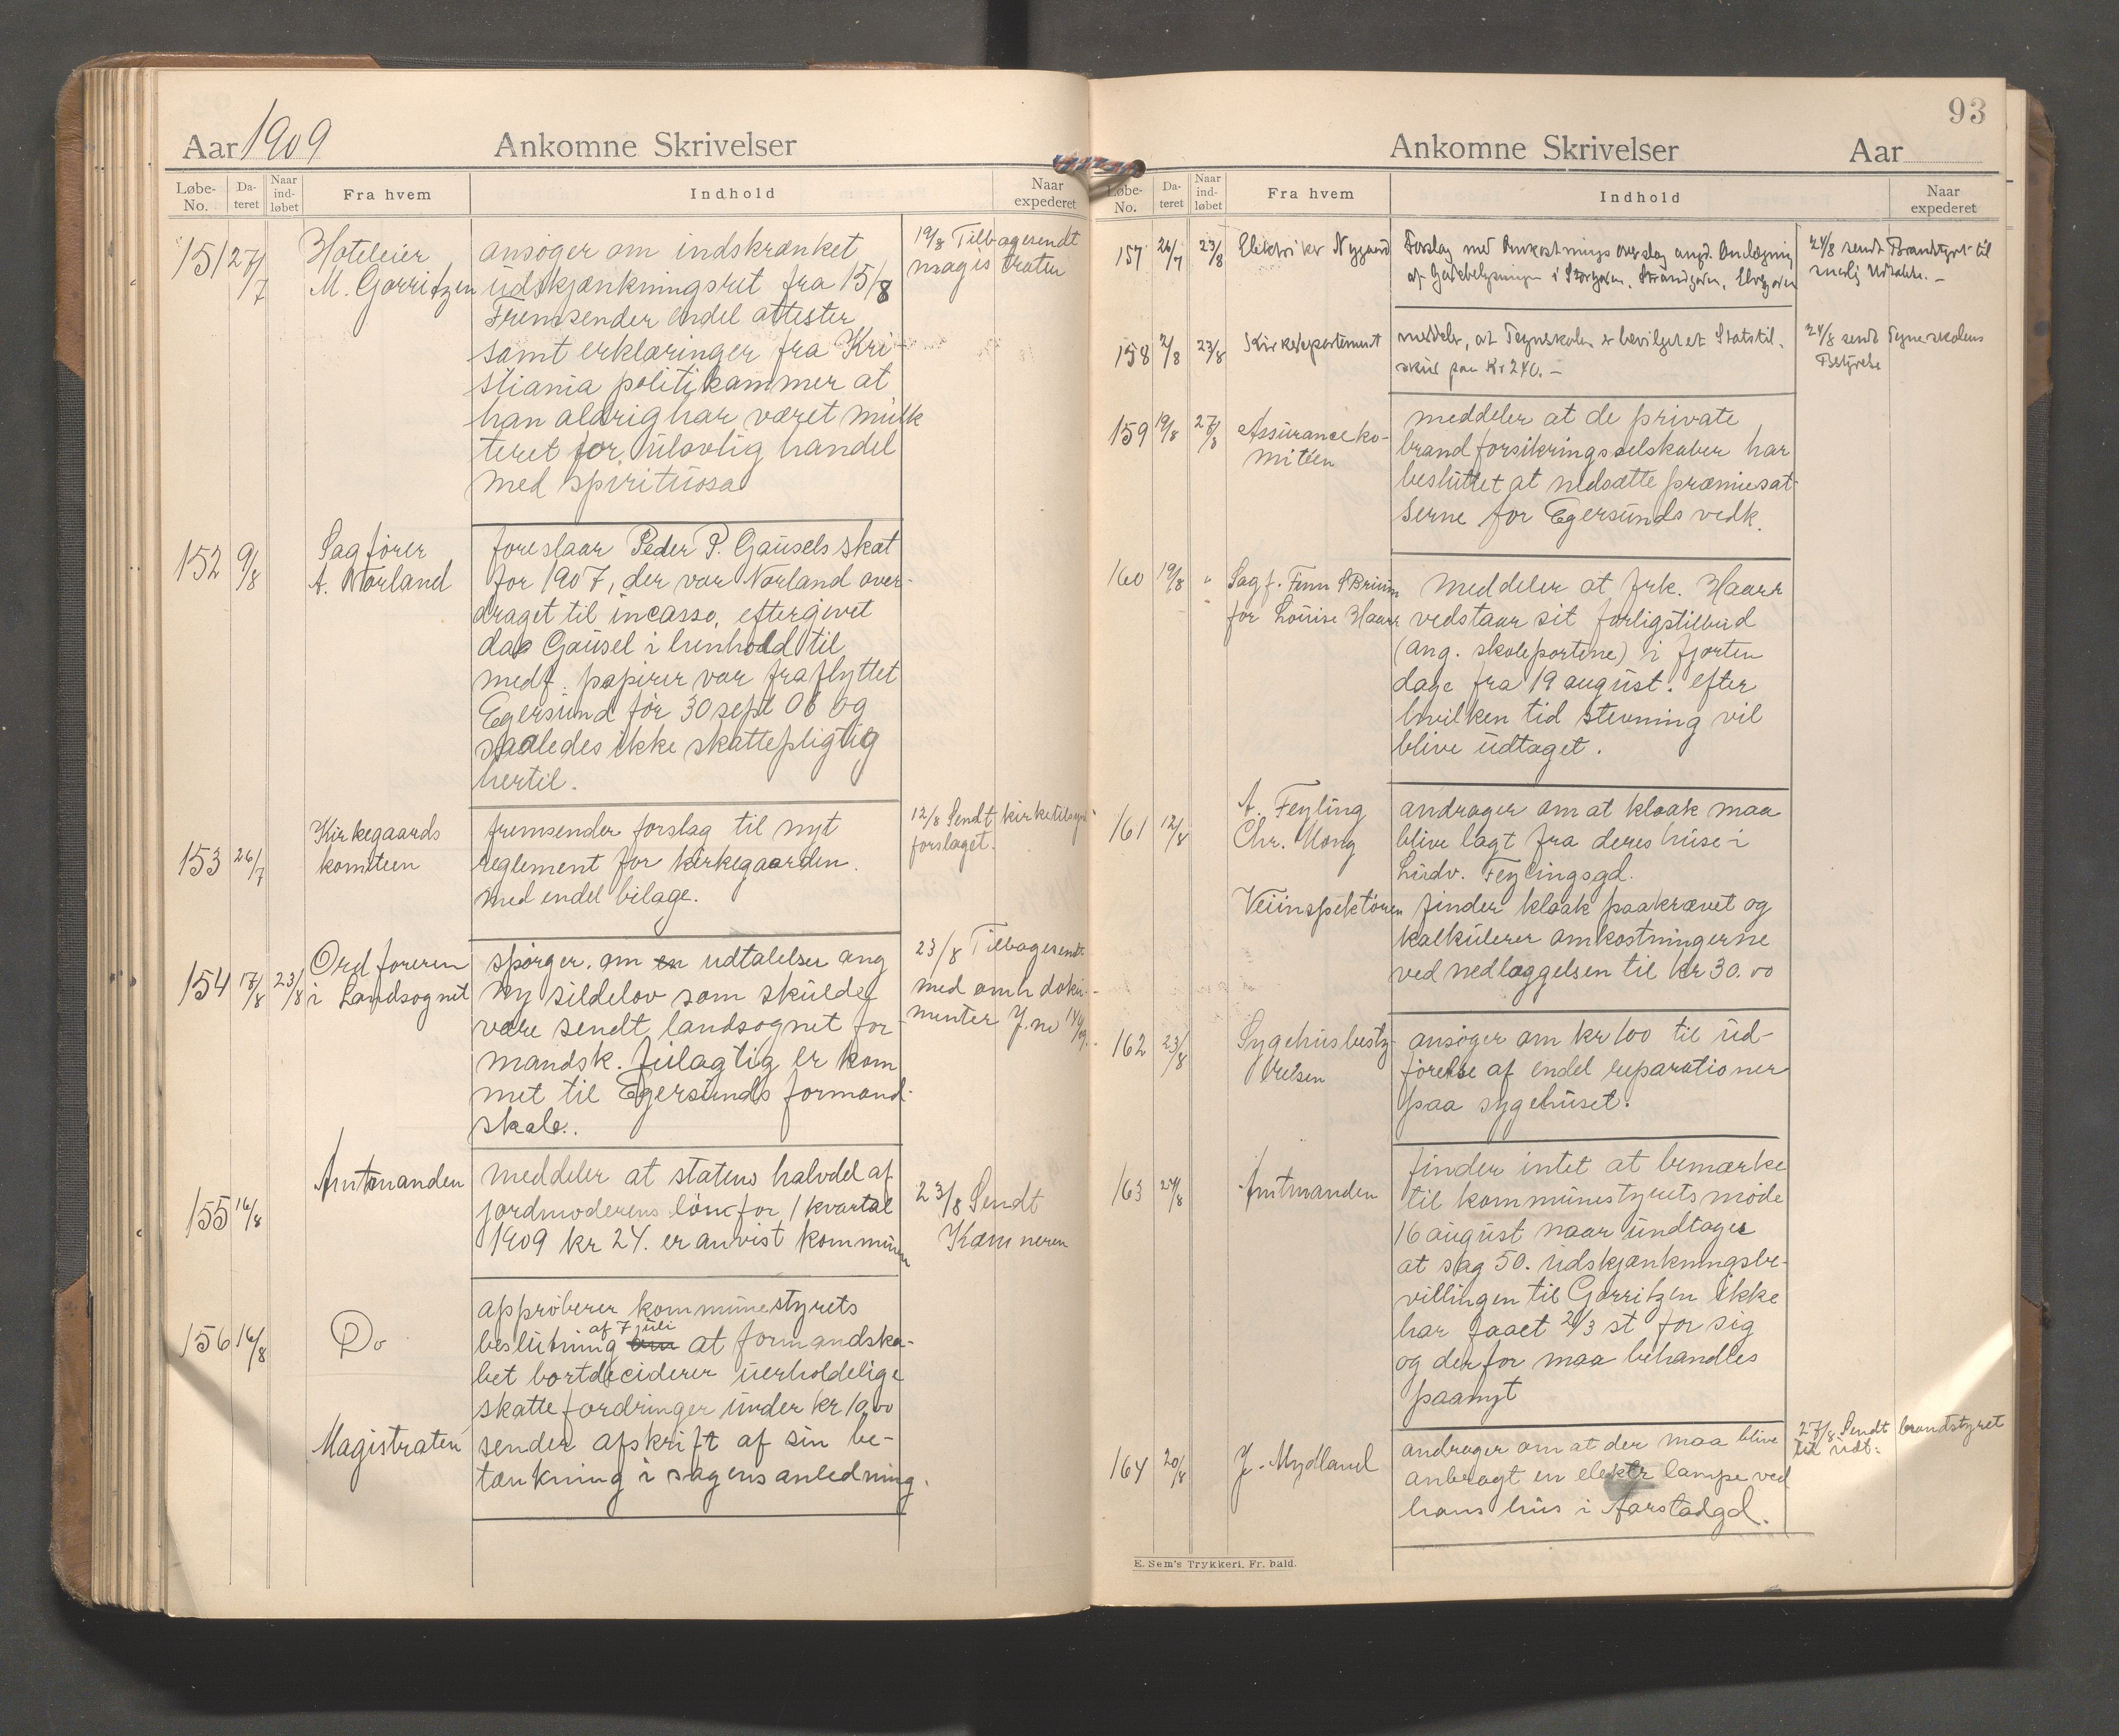 Aar 1909 Ankomne Skrivelser
Løbe-No. Da-teret Naar ind-løbet Fra hvem Indhold Naar expederet
151 27/7 Hoteleier ansøger om indskrænket 19/8 Tilbagesendt
M. Gørritzen udskjænkningsret fra 15/8 magistraten
Fremsender endel attester
samt erklæringer fra Kri-
stiania politikammer at
han aldrig har været mulk
teret for ulovlig handel
med spirituosa
152 9/8 Sagfører foreslaar Peder P. Gausels skat
A. Norland for 1907, der var Norland over-
draget til incasso, eftergivet
da Gausel i henhold til
medf. papirer var fraflyttet
Egersund før 30 sept 06 og
saaledes ikke skattepligtig
hertil.
153 26/7 Kirkegaards fremsender forslag til nyt 12/8 Sendt kirketilsyn
komiteen reglement for kirkegaarden. forslaget.
med endel bilage.
154 17/8 23/8 Ordføreren spørger om en udtalelser ang 23/8 Tilbagesendt
i Landsognet ny sildelov som skulde med omh doku-
være sendt landsognet for- menter J.no
mandsk. feilagtig er kom
met til Egersunds formand-
skab.
155 16/8 Amtmanden meddeler at statens halvdel af 23/8 Sendt
jordmoderens løn for 1 kvartal Kæmneren
1909 kr 24. er anvist kommunen
156 16/8 Do approberer kommunestyrets
beslutning af 7 juli om at formandska-
bet bortdeciderer uerholdelige
skattefordringer under kr 10,00
Magistraten sender afskrift af sin be-
tænkning i sagens anledning.
93
Ankomne Skrivelser Aar
Løbe-No. Da-teret Naar ind-løbet Fra hvem Indhold Naar expederet
157 26/7 23/8 Elektriker Nygaard Forslag med Omkostnings overslag angd. Anlægning 24/8 sendt Brandstyret til
af Gadebelysningen i Storgaden, Strandgaden, Elvegaden
158 2/8 23/8 Kirkedepartement meddeler, at Tegneskolen er bevilget et Statstil- 24/8 sendt Tegneskolens
skud paa Kr 240.- Bestyrelse
159 19/8 27/8 Assuranceko- meddeler at de private
miteen brandforsikringsselskaber har
besluttet at nedsætte præmiesat-
serne for Egersunds vedk.
160 19/8 " Sagf. Bruun meddeler at frk. Haarr
for Louise Haarr vedstaar sit forligstilbud
(ang. skoleportene) i fjorten
dage fra 19 august. efter
hvilken tid stevning vil
blive udtaget.
161 12/8 A. Feyling andrager om at kloak maa
Chr. Mong blive lagt fra deres huse i
Ludv. Feylingsgd.
Veiinspektøren finder kloak paakrævet og
kalkulerer omkostningerne
ved nedlæggelsen til kr 30.00
162 23/8 Sygehusbesty- ansøger om kr 100 til ud-
relsen førelse af endel reparationer
paa sygehuset.
163 24/8 Amtmanden finder intet at bemærke
til kommunestyrets møde
16 august naar undtages
at sag 50. udskjænkningsbe-
villingen til Gørritzen ikke
har faaet 2/3 st for sig
og derfor maa behandles
paanyt
164 20/8 J. Mydland andrager om at der maa blive 27/8 Sendt brandstyret
anbragt en elektr lampe ved til udt:
hans hus i Aarstadgd.
E. Sem's Trykkeri, Fr. hald.